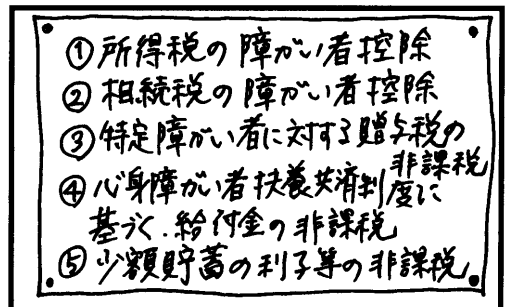 ①所得税の障がい者控除
②相続税の障がい者控除
③特定障がい者に対する贈与税の
非課税
④心身障がい者扶養共済制度に
基づく.給付金の非課税
⑤少額貯蓄の利子等の非課税